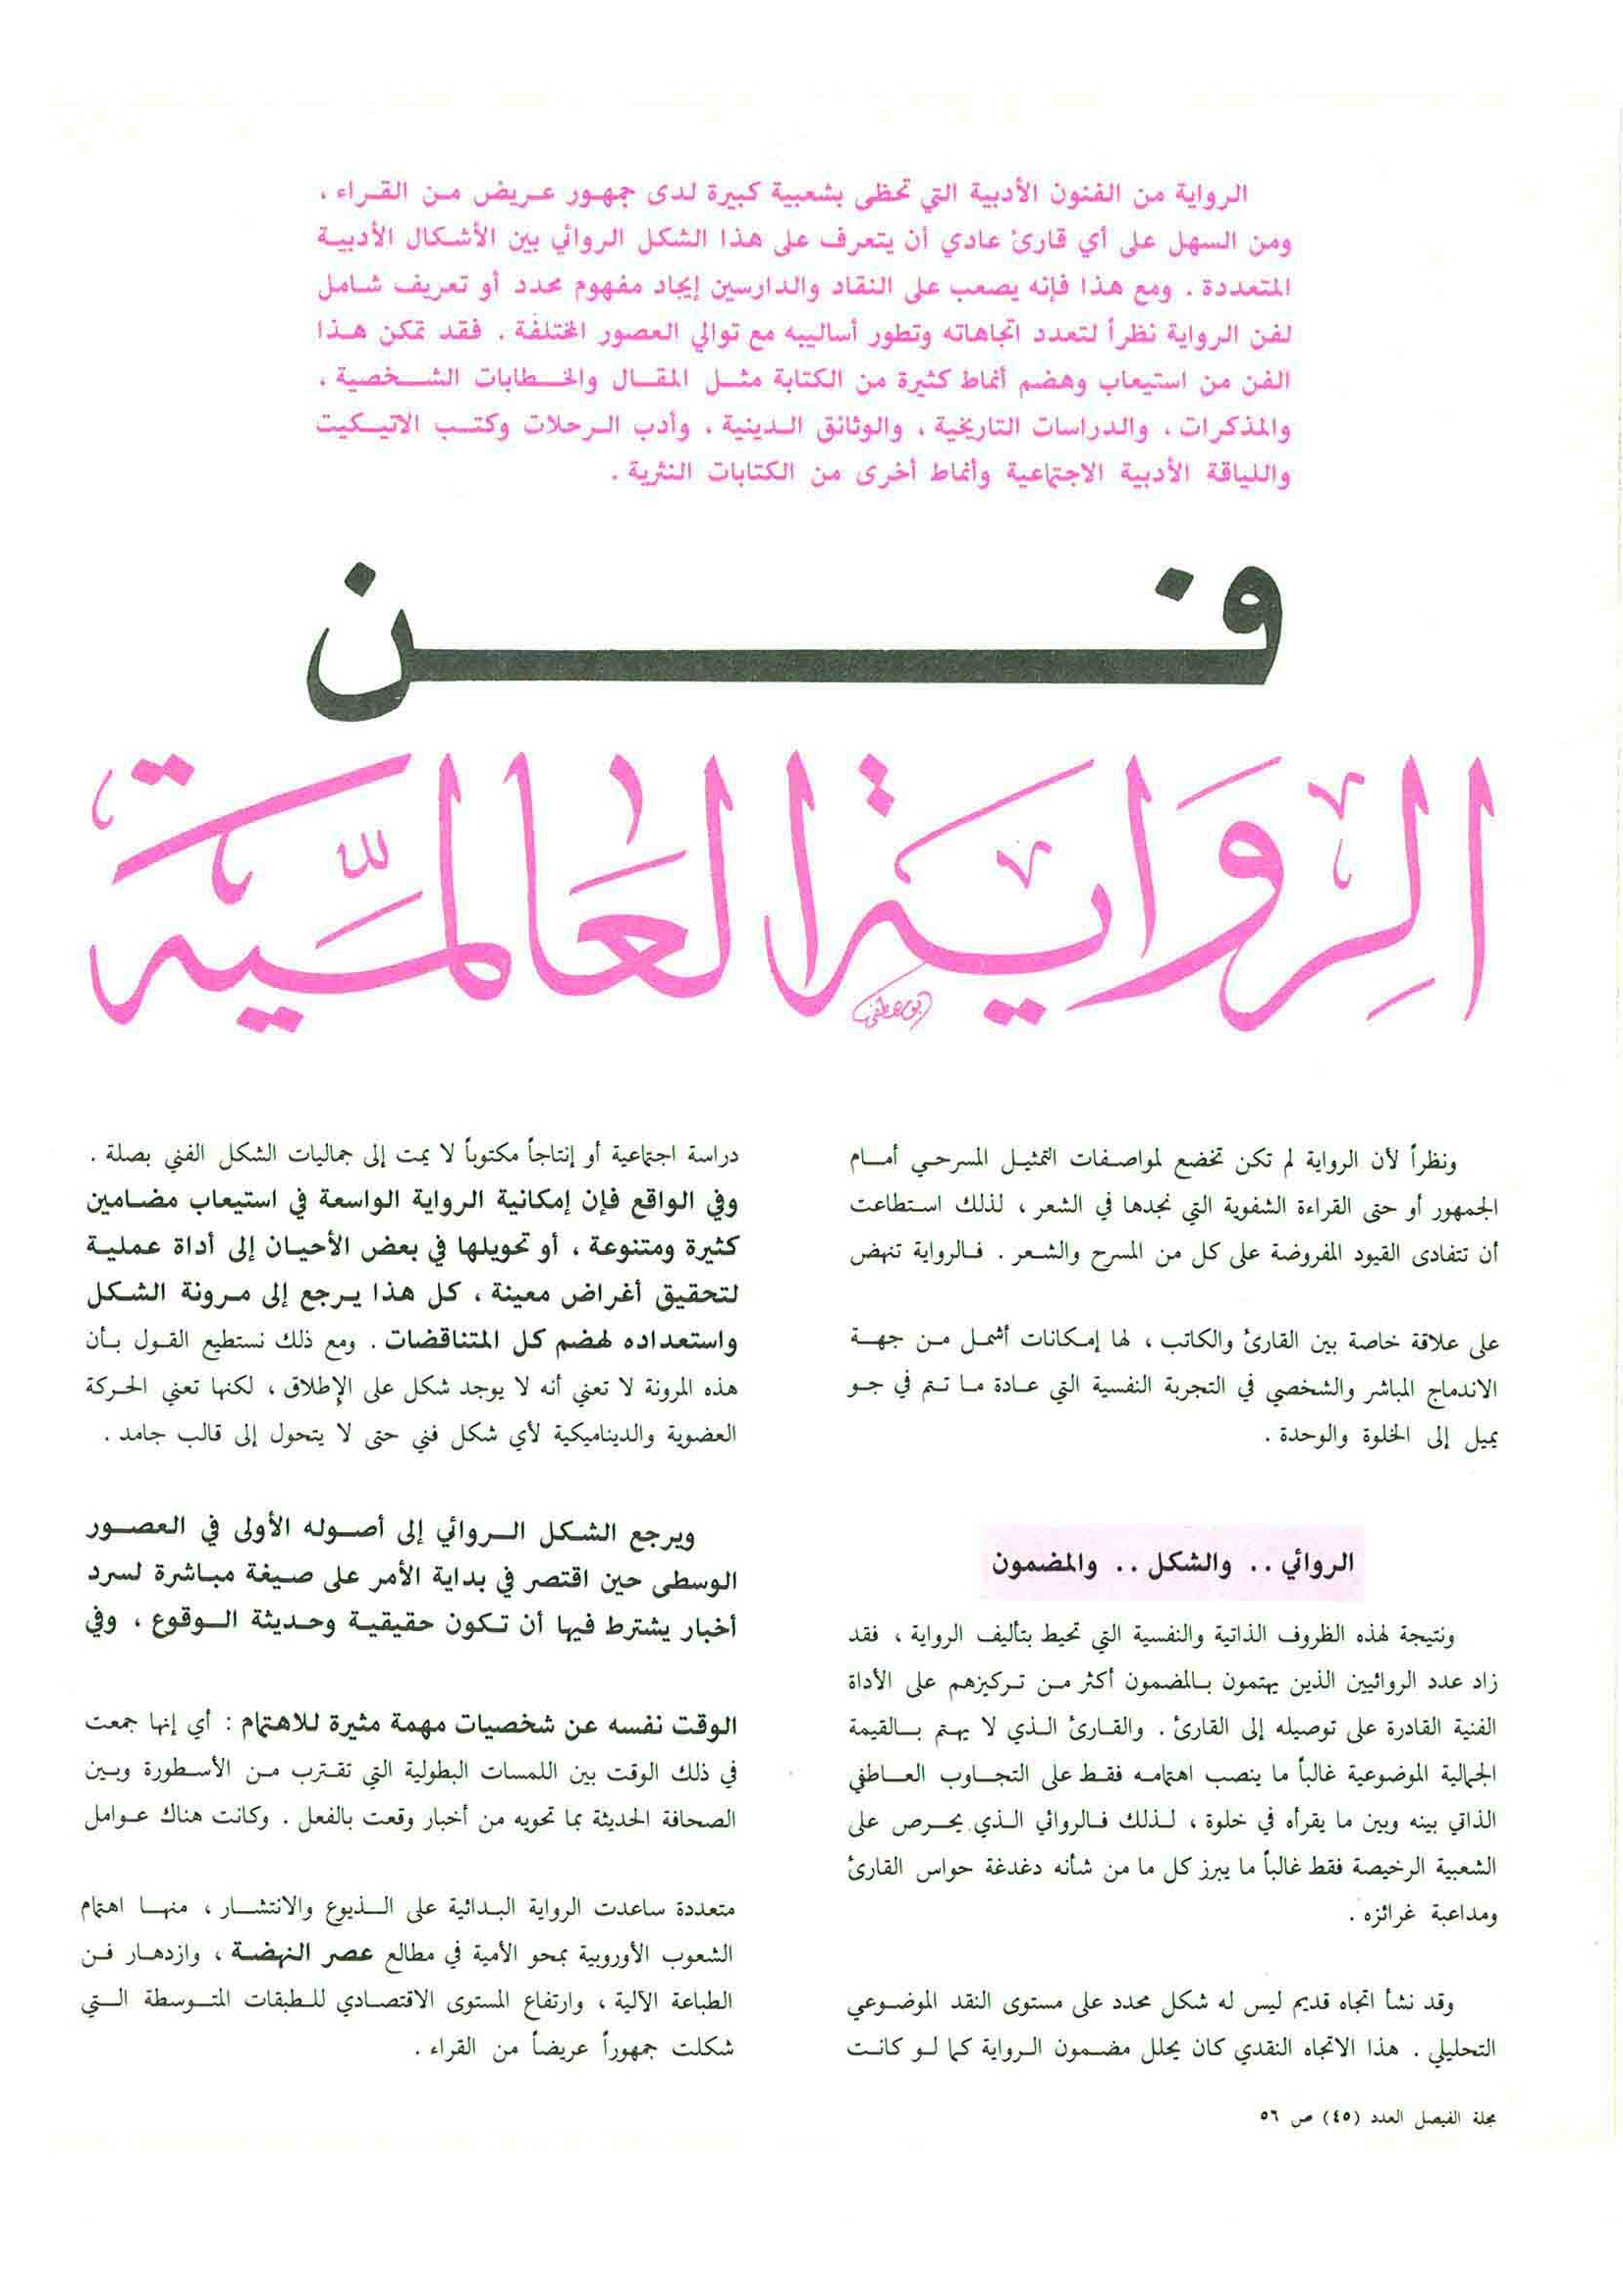 الرواية من الفنون الأدبية التي تحظى بشعبية كبيرة لدى جمهور عريض من القراء ،
ومن السهل على أي قارئ عادي أن يتعرف على هذا الشكل الروائي بين الأشكال الأدبية
المتعددة . ومع هذا فإنه يصعب على النقاد والدارسين إيجاد مفهوم محدد أو تعريف شامل
لفن الرواية نظراً لتعدد اتجاهاته وتطور أساليبه مع توالي العصور المختلفة . فقد تمكن هذا
الفن من استيعاب وهضم أنماط كثيرة من الكتابة مثل المقال والخطابات الشخصية ،
والمذكرات ، والدراسات التاريخية ، والوثائق الدينية ، وأدب الرحلات وكتب الاتيكيت
واللياقة الأدبية الاجتماعية وأنماط أخرى من الكتابات النثرية .
فن
الرواية العالمية
أبو مصطفى
ونظراً لأن الرواية لم تكن تخضع لمواصفات التمثيل المسرحي أمام
الجمهور أو حتى القراءة الشفوية التي نجدها في الشعر ، لذلك استطاعت
أن تتفادى القيود المفروضة على كل من المسرح والشعر . فالرواية تنهض
على علاقة خاصة بين القارئ والكاتب ، لها إمكانات أشمل من جهة
الاندماج المباشر والشخصي في التجربة النفسية التي عادة ما تتم في جو
يميل إلى الخلوة والوحدة .
الروائي .. والشكل .. والمضمون
ونتيجة لهذه الظروف الذاتية والنفسية التي تحيط بتأليف الرواية ، فقد
زاد عدد الروائيين الذين يهتمون بالمضمون أكثر من تركيزهم على الأداة
الفنية القادرة على توصيله إلى القارئ . والقارئ الذي لا يهتم بالقيمة
الجمالية الموضوعية غالباً ما ينصب اهتمامه فقط على التجاوب العاطفي
الذاتي بينه وبين ما يقرأه في خلوة ، لذلك فالروائي الذي يحرص على
الشعبية الرخيصة فقط غالباً ما يبرز كل ما من شأنه دغدغة حواس القارئ
ومداعبة غرائزه .
وقد نشأ اتجاه قديم ليس له شكل محدد على مستوى النقد الموضوعي
التحليلي . هذا الاتجاه النقدي كان يحلل مضمون الرواية كما لو كانت
دراسة اجتماعية أو إنتاجاً مكتوباً لا يمت إلى جماليات الشكل الفني بصلة .
وفي الواقع فإن إمكانية الرواية الواسعة في استيعاب مضامين
كثيرة ومتنوعة ، أو تحويلها في بعض الأحيان إلى أداة عملية
لتحقيق أغراض معينة ، كل هذا يرجع إلى مرونة الشكل
واستعداده لهضم كل المتناقضات . ومع ذلك نستطيع القول بأن
هذه المرونة لا تعني أنه لا يوجد شكل على الإطلاق ، لكنها تعني الحركة
العضوية والديناميكية لأي شكل فني حتى لا يتحول إلى قالب جامد .
ويرجع الشكل الروائي إلى أصوله الأولى في العصور
الوسطى حين اقتصر في بداية الأمر على صيغة مباشرة لسرد
أخبار يشترط فيها أن تكون حقيقية وحديثة الوقوع ، وفي
الوقت نفسه عن شخصيات مهمة مثيرة للاهتمام : أي إنها جمعت
في ذلك الوقت بين اللمسات البطولية التي تقترب من الأسطورة وبين
الصحافة الحديثة بما تحويه من أخبار وقعت بالفعل . وكانت هناك عوامل
متعددة ساعدت الرواية البدائية على الذيوع والانتشار ، منها اهتمام
الشعوب الأوروبية بمحو الأمية في مطالع عصر النهضة ، وازدهار فن
الطباعة الآلية ، وارتفاع المستوى الاقتصادي للطبقات المتوسطة التي
شكلت جمهوراً عريضاً من القراء .
مجلة الفيصل العدد (٤٥) ص ٥٦